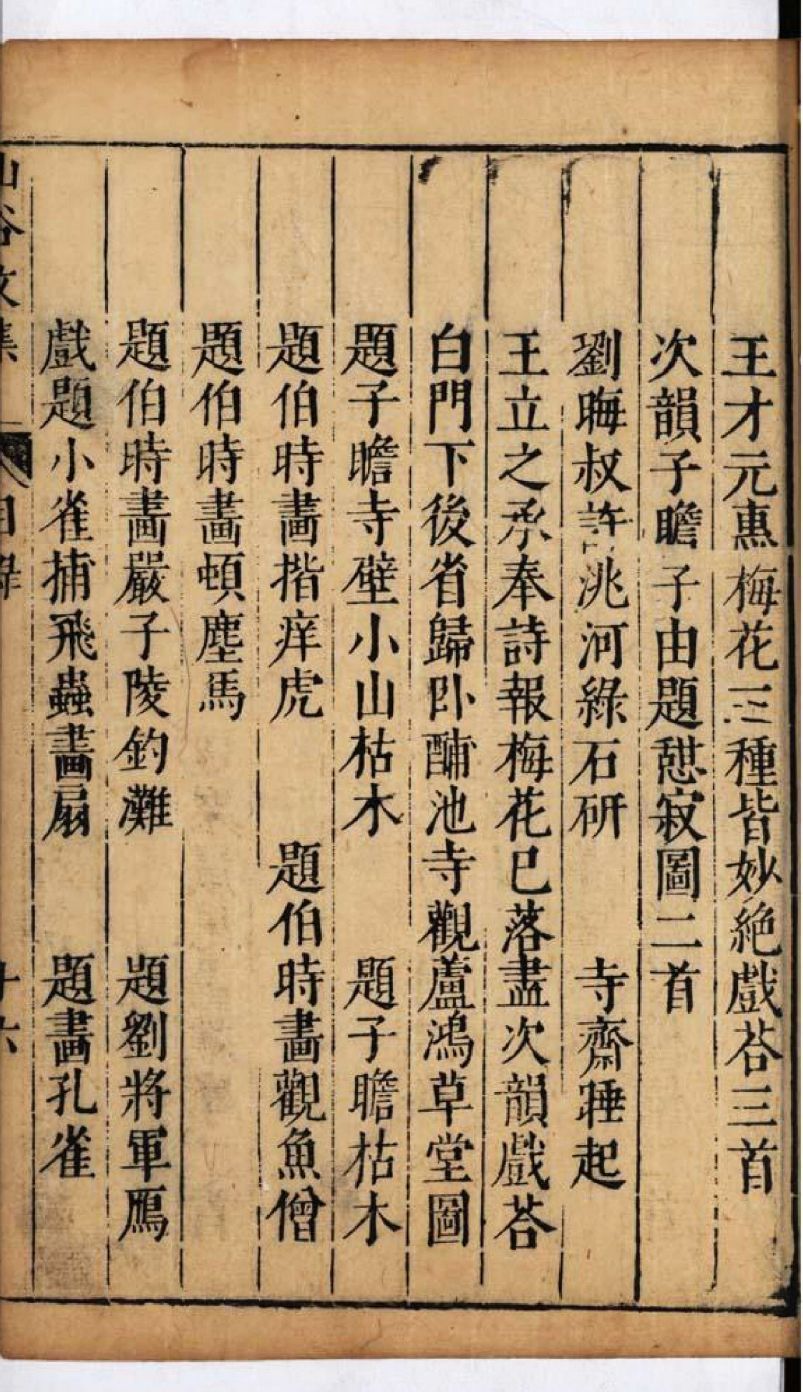 王才元惠梅花三種皆妙絶戲荅三首
次韻子瞻子由題憇寂圖二首
劉晦叔許洮河綠石研　寺齋睡起
王立之承奉詩報梅花已落盡次韻戲荅
白門下後省歸卧酺池寺觀蘆鴻草堂圖
題子瞻寺壁小山枯木　題子瞻枯木
題伯時畫揩痒虎　題伯時畫觀魚僧
題伯時畫頓塵馬
題伯時畫嚴子陵釣灘　題劉將軍鴈
戲題小雀捕飛蟲畫扇　題畫孔雀
山谷文集　目錄　十六